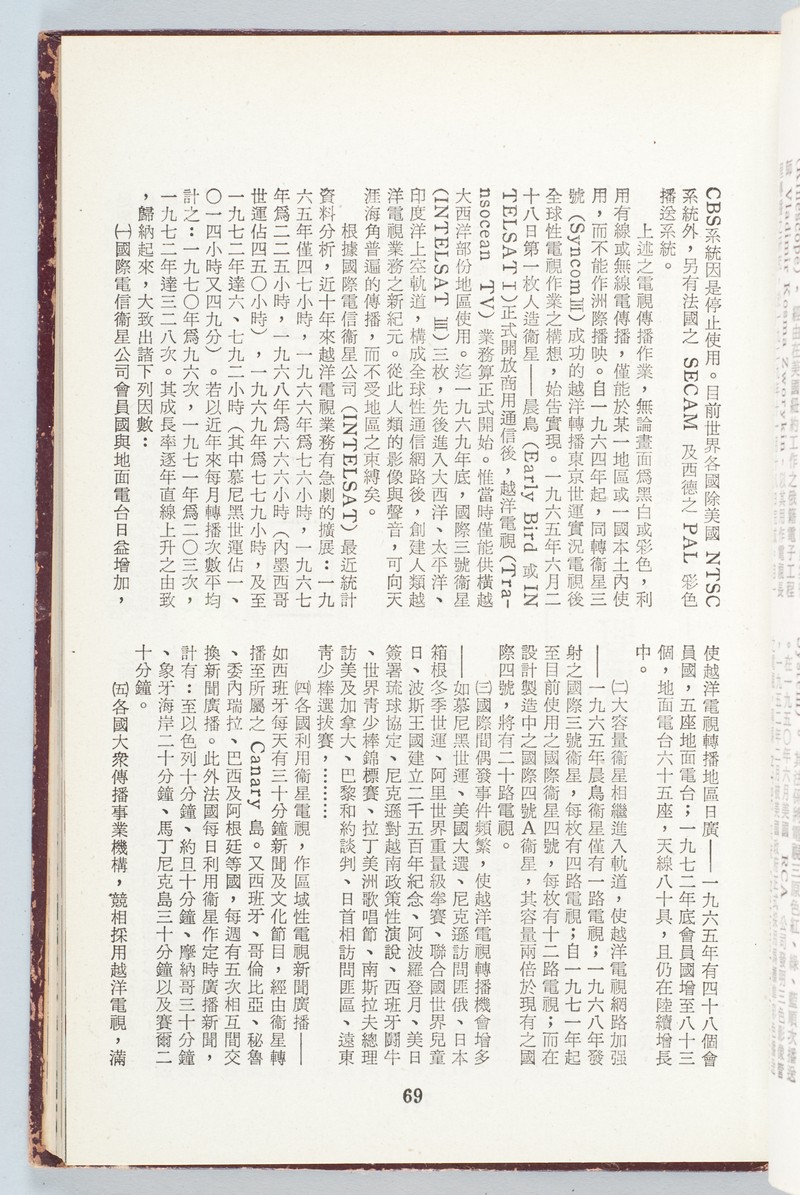 CBS系統因是停止使用。目前世界各國除美國 NTSC
系統外，另有法國之 SECAM 及西德之 PAL 彩色
播送系統。
上述之電視傳播作業，無論畫面為黑白或彩色，利
用有線或無線電傳播，僅能於某一地區或一國本土內使
用，而不能作洲際播映。自一九六四年起，同轉衞星三
號（SyncomⅢ）成功的越洋轉播東京世運實況電視後
全球性電視作業之構想，始告實現。一九六五年六月二
十八日第一枚人造衞星——晨鳥（Early Bird 或 IN
TELSAT I）正式開放商用通信後，越洋電視（Tra-
nsocean TV）業務算正式開始。惟當時僅能供橫越
大西洋部份地區使用。迄一九六九年底，國際三號衞星
（INTELSAT Ⅲ）三枚，先後進入大西洋、太平洋、
印度洋上空軌道，構成全球性通信網路後，創建人類越
洋電視業務之新紀元。從此人類的影像與聲音，可向天
涯海角普遍的傳播，而不受地區之束縛矣。
根據國際電信衞星公司（INTELSAT）最近統計
資料分析，近十年來越洋電視業務有急劇的擴展：一九
六五年僅四七小時，一九六六年爲七六小時，一九六七
年爲二二五小時，一九六八年爲六六六小時（內墨西哥
世運佔四五〇小時），一九六九年爲七七九小時，及至
一九七二年達六、七九二小時（其中慕尼黑世運佔一、
〇一四小時又四九分）。若以近年來每月轉播次數平均
計之：一九七〇年爲九六次，一九七一年爲二〇三次，
一九七二年達三二八次。其成長率逐年直線上升之由致
，歸納起來，大致出諸下列因數：
㈠國際電信衞星公司會員國與地面電台日益增加，
使越洋電視轉播地區日廣——一九六五年有四十八個會
員國，五座地面電台；一九七二年底會員國增至八十三
個，地面電台六十五座，天線八十具，且仍在陸續增長
中。
㈡大容量衞星相繼進入軌道，使越洋電視網路加强
——一九六五年晨鳥衞星僅有一路電視；一九六八年發
射之國際三號衞星，每枚有四路電視；自一九七一年起
至目前使用之國際衞星四號，每枚有十二路電視；而在
設計製造中之國際四號A衞星，其容量兩倍於現有之國
際四號，將有二十路電視。
㈢國際間偶發事件頻繁，使越洋電視轉播機會增多
——如慕尼黑世運、美國大選、尼克遜訪問匪俄、日本
箱根冬季世運、阿里世界重量級拳賽、聯合國世界兒童
日、波斯王國建立二千五百年紀念、阿波羅登月、美日
簽署琉球協定、尼克遜對越南政策性演說、西班牙鬪牛
、世界靑少棒錦標賽、拉丁美洲歌唱節、南斯拉夫總理
訪美及加拿大、巴黎和約談判、日首相訪問匪區、遠東
靑少棒選拔賽，………
㈣各國利用衞星電視，作區域性電視新聞廣播——
如西班牙每天有三十分鐘新聞及文化節目，經由衞星轉
播至所屬之 Canary 島。又西班牙、哥倫比亞、秘魯
、委內瑞拉、巴西及阿根廷等國，每週有五次相互間交
換新聞廣播。此外法國每日利用衞星作定時廣播新聞，
計有：至以色列十分鐘、約旦十分鐘、摩納哥三十分鐘
、象牙海岸二十分鐘、馬丁尼克島三十分鐘以及賽爾二
十分鐘。
㈤各國大衆傳播事業機構，競相採用越洋電視，滿
69